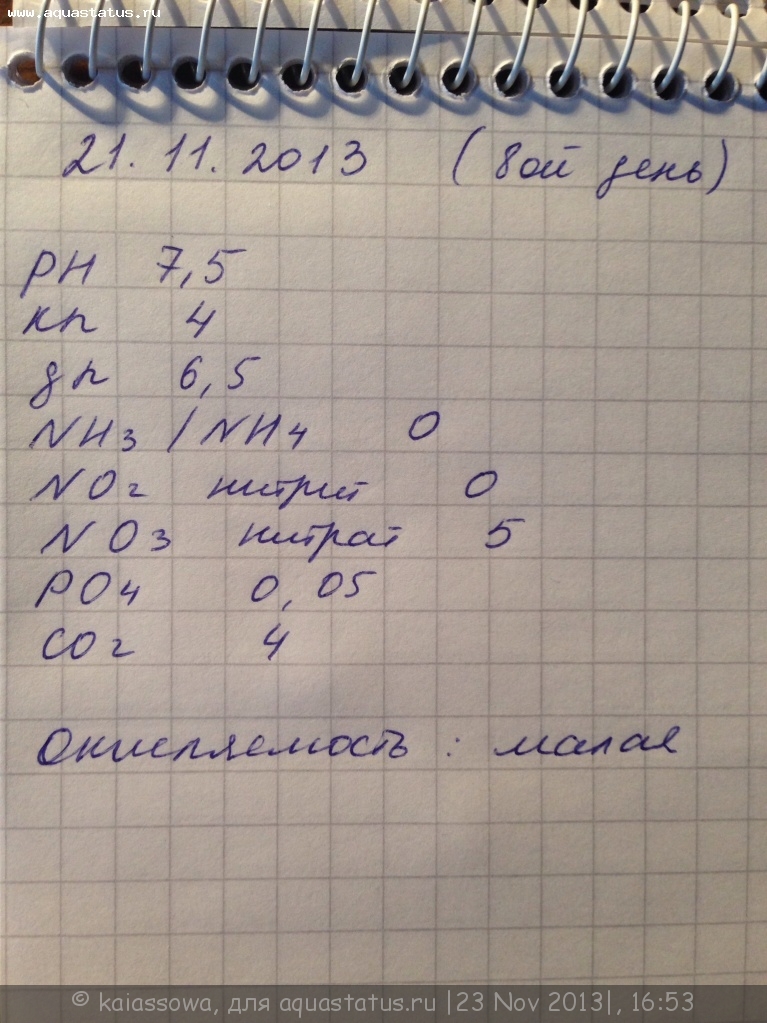 www.aquastatus.ru
21.11.2013 (8ой день)
PH 7,5
кп 4
gп 6,5
NH3 / NH4 0
NO2 нитрит 0
NO3 нитрат 5
PO4 0,05
CO2 4
Окисляемость : малая
© kaiassowa, для aquastatus.ru |23 Nov 2013|, 16:53